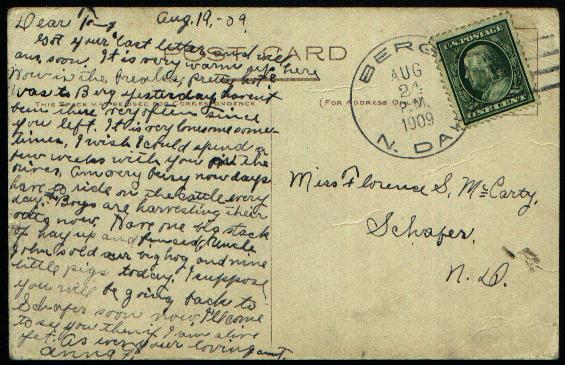 Aug. 19 - 09
Dear
Got your last letter and will
ans. soon. It is very warm up here
POST CARD
Now in the pretty hot
was to Berg yesterday haven't
THIS SPACE MAY BE USED FOR CORRESPONDENCE
been there very often since
you left. It is very lonesome some
times. I wish I could spend a
few weeks with you the
river. Am very busy now days
have to ride on the cattle every
day. Boys are harvesting their
oats now. Have one big stack
of hay up and fenced. Uncle
John sold our big hog and nine
little pigs today. I suppose
you will be going back to
Schafer soon now. I'll come
to see you then if I am alive
yet. As ever your loving aunt.
Anna
(FOR ADDRESS
BERG
AUG
24
P.M.
1909
N. DAK
U.S. POSTAGE
ONE CENT
Miss Florence S. McCarty,
Schafer,
N. D.